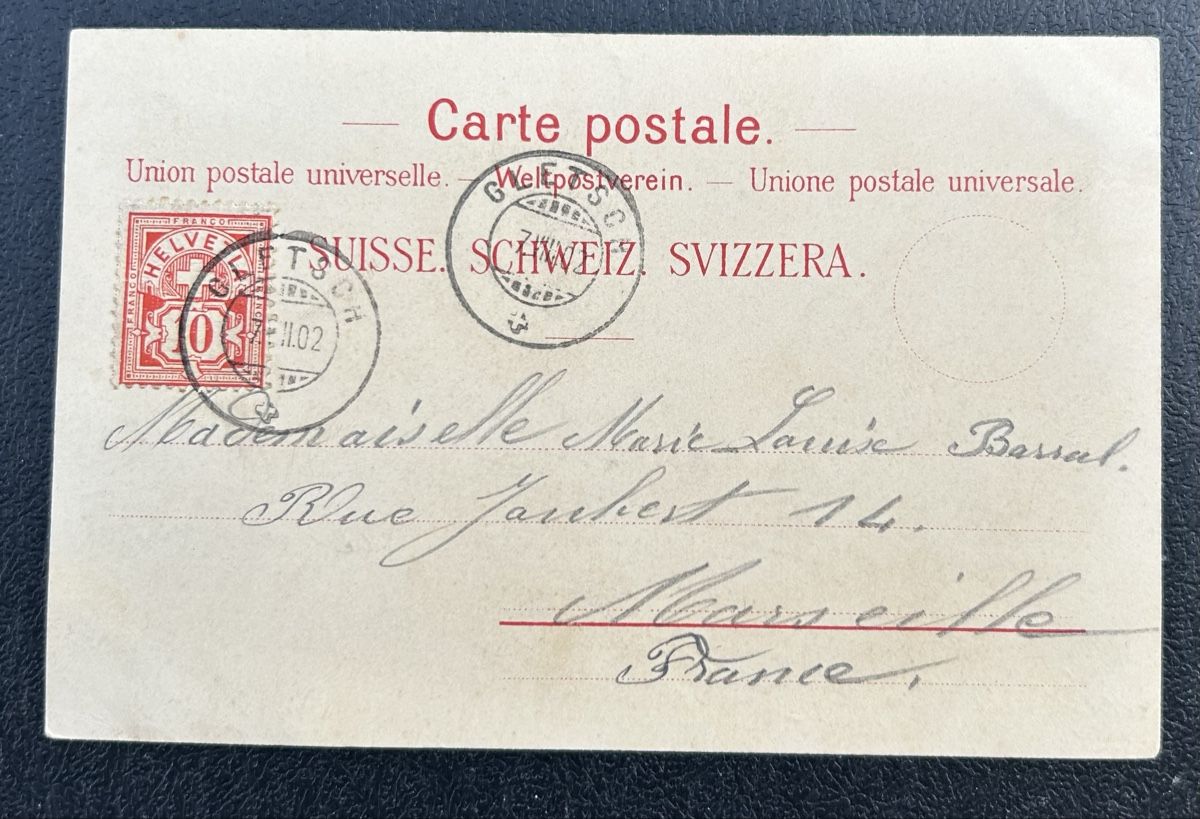 Carte postale.
Union postale universelle. — Weltpostverein. — Unione postale universale.
SUISSE. SCHWEIZ. SVIZZERA.
FRANCO
FRANCO
HELVE
10
GLETSCH
II.02
GLETSCH
Mademaiselle Marie Louise Barral.
Rue Joubert 14.
Marseille
France.